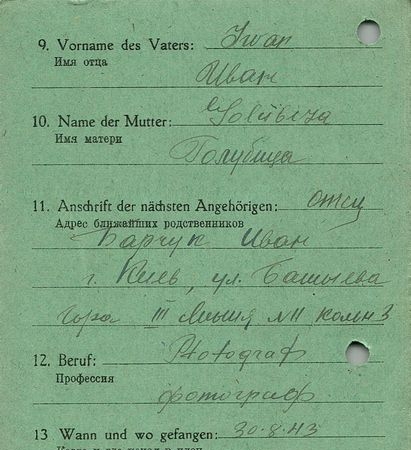 9. Vorname des Vaters: Iwan
Имя отца
Иван
10. Name der Mutter:
Имя матери
Голубица
11. Anschrift der nächsten Angehörigen: отец
Адрес ближайших родственников
Барчук Иван
г. Киев, ул. Батыева
гора III линия №11 комн 3
12. Beruf: Photograf
Профессия
фотограф
13 Wann und wo gefangen: 30.8.43